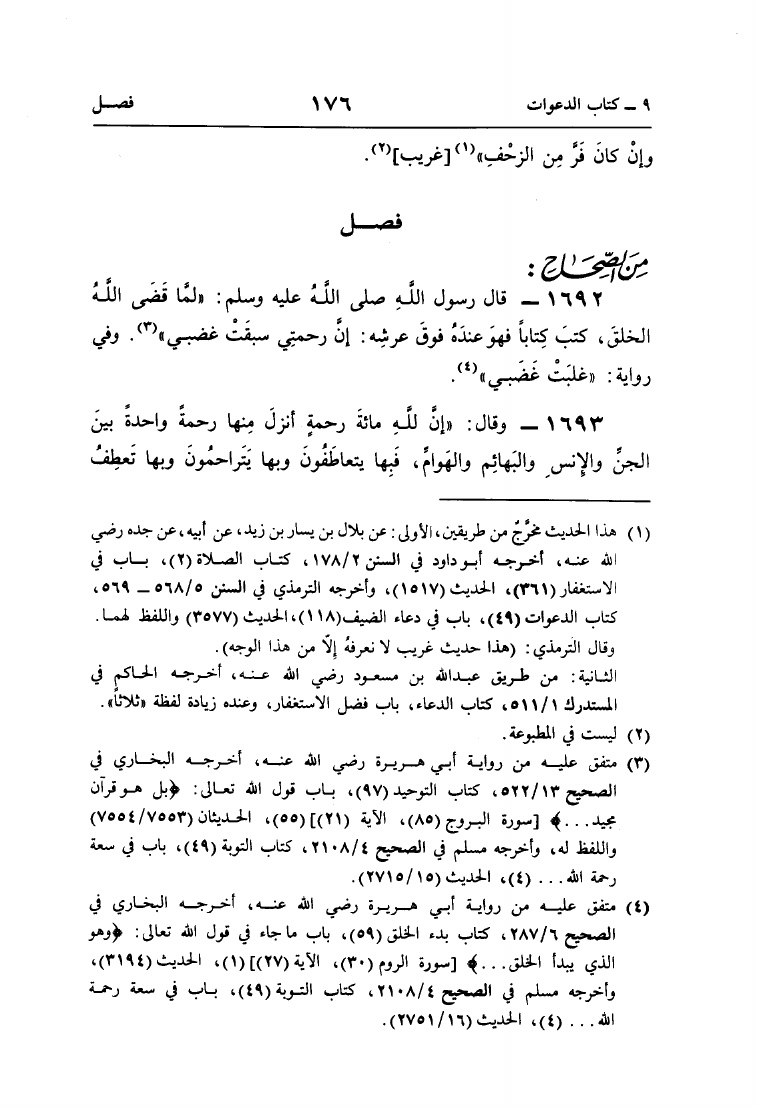 ٩ ــ كتاب الدعوات ١٧٦ فصــل
وإنْ كانَ فَرَّ مِن الزحْفِ»(١) [غريب](٢).
فصــل
مِنَ الصِّحَاحِ :
١٦٩٢ ــ قال رسول اللَّهِ صلى اللَّهُ عليه وسلم: «لمَّا قَضَى اللَّهُ
الخلقَ، كتبَ كِتاباً فهوَ عندَهُ فوقَ عرشِه: إنَّ رحمتِي سبقَتْ غضبي»(٣). وفي
رواية: «غلبَتْ غَضَبي»(٤).
١٦٩٣ ــ وقال: «إنَّ للَّهِ مائةَ رحمةٍ أنزلَ مِنها رحمةً واحدةً بينَ
الجنِّ والإِنسِ والبَهائِمِ والهَوامِّ، فَبِها يتعاطَفُونَ وبها يَتَراحمُونَ وبها تَعطِفُ
(١) هذا الحديث مخرَّجٌ من طريقين، الأولى: عن بلال بن يسار بن زيد، عن أبيه، عن جده رضي
الله عنه، أخرجه أبو داود في السنن ١٧٨/٢، كتاب الصلاة (٢)، باب في
الاستغفار (٣٦١)، الحديث (١٥١٧)، وأخرجه الترمذي في السنن ٥٦٨/٥ ــ ٥٦٩،
كتاب الدعوات (٤٩)، باب في دعاء الضيف (١١٨)، الحديث (٣٥٧٧) واللفظ لهما.
وقال الترمذي: (هذا حديث غريب لا نعرفهُ إلاّ من هذا الوجه).
الثانية: من طريق عبدالله بن مسعود رضي الله عنه، أخرجه الحاكم في
المستدرك ٥١١/١، كتاب الدعاء، باب فضل الاستغفار، وعنده زيادة لفظة «ثلاثاً».
(٢) ليست في المطبوعة.
(٣) متفق عليه من رواية أبي هريرة رضي الله عنه، أخرجه البخاري في
الصحيح ٥٢٢/١٣، كتاب التوحيد (٩٧)، باب قول الله تعالى: ﴿بل هو قرآن
مجيد...﴾ [سورة البروج (٨٥)، الآية (٢١)] (٥٥)، الحديثان (٧٥٥٤/٧٥٥٣)
واللفظ له، وأخرجه مسلم في الصحيح ٢١٠٨/٤، كتاب التوبة (٤٩)، باب في سعة
رحمة الله... (٤)، الحديث (٢٧١٥/١٥).
(٤) متفق عليه من رواية أبي هريرة رضي الله عنه، أخرجه البخاري في
الصحيح ٢٨٧/٦، كتاب بدء الخلق (٥٩)، باب ما جاء في قول الله تعالى: ﴿وهو
الذي يبدأ الخلق...﴾ [سورة الروم (٣٠)، الآية (٢٧)] (١)، الحديث (٣١٩٤)،
وأخرجه مسلم في الصحيح ٢١٠٨/٤، كتاب التوبة (٤٩)، باب في سعة رحمة
الله... (٤)، الحديث (٢٧٥١/١٦).